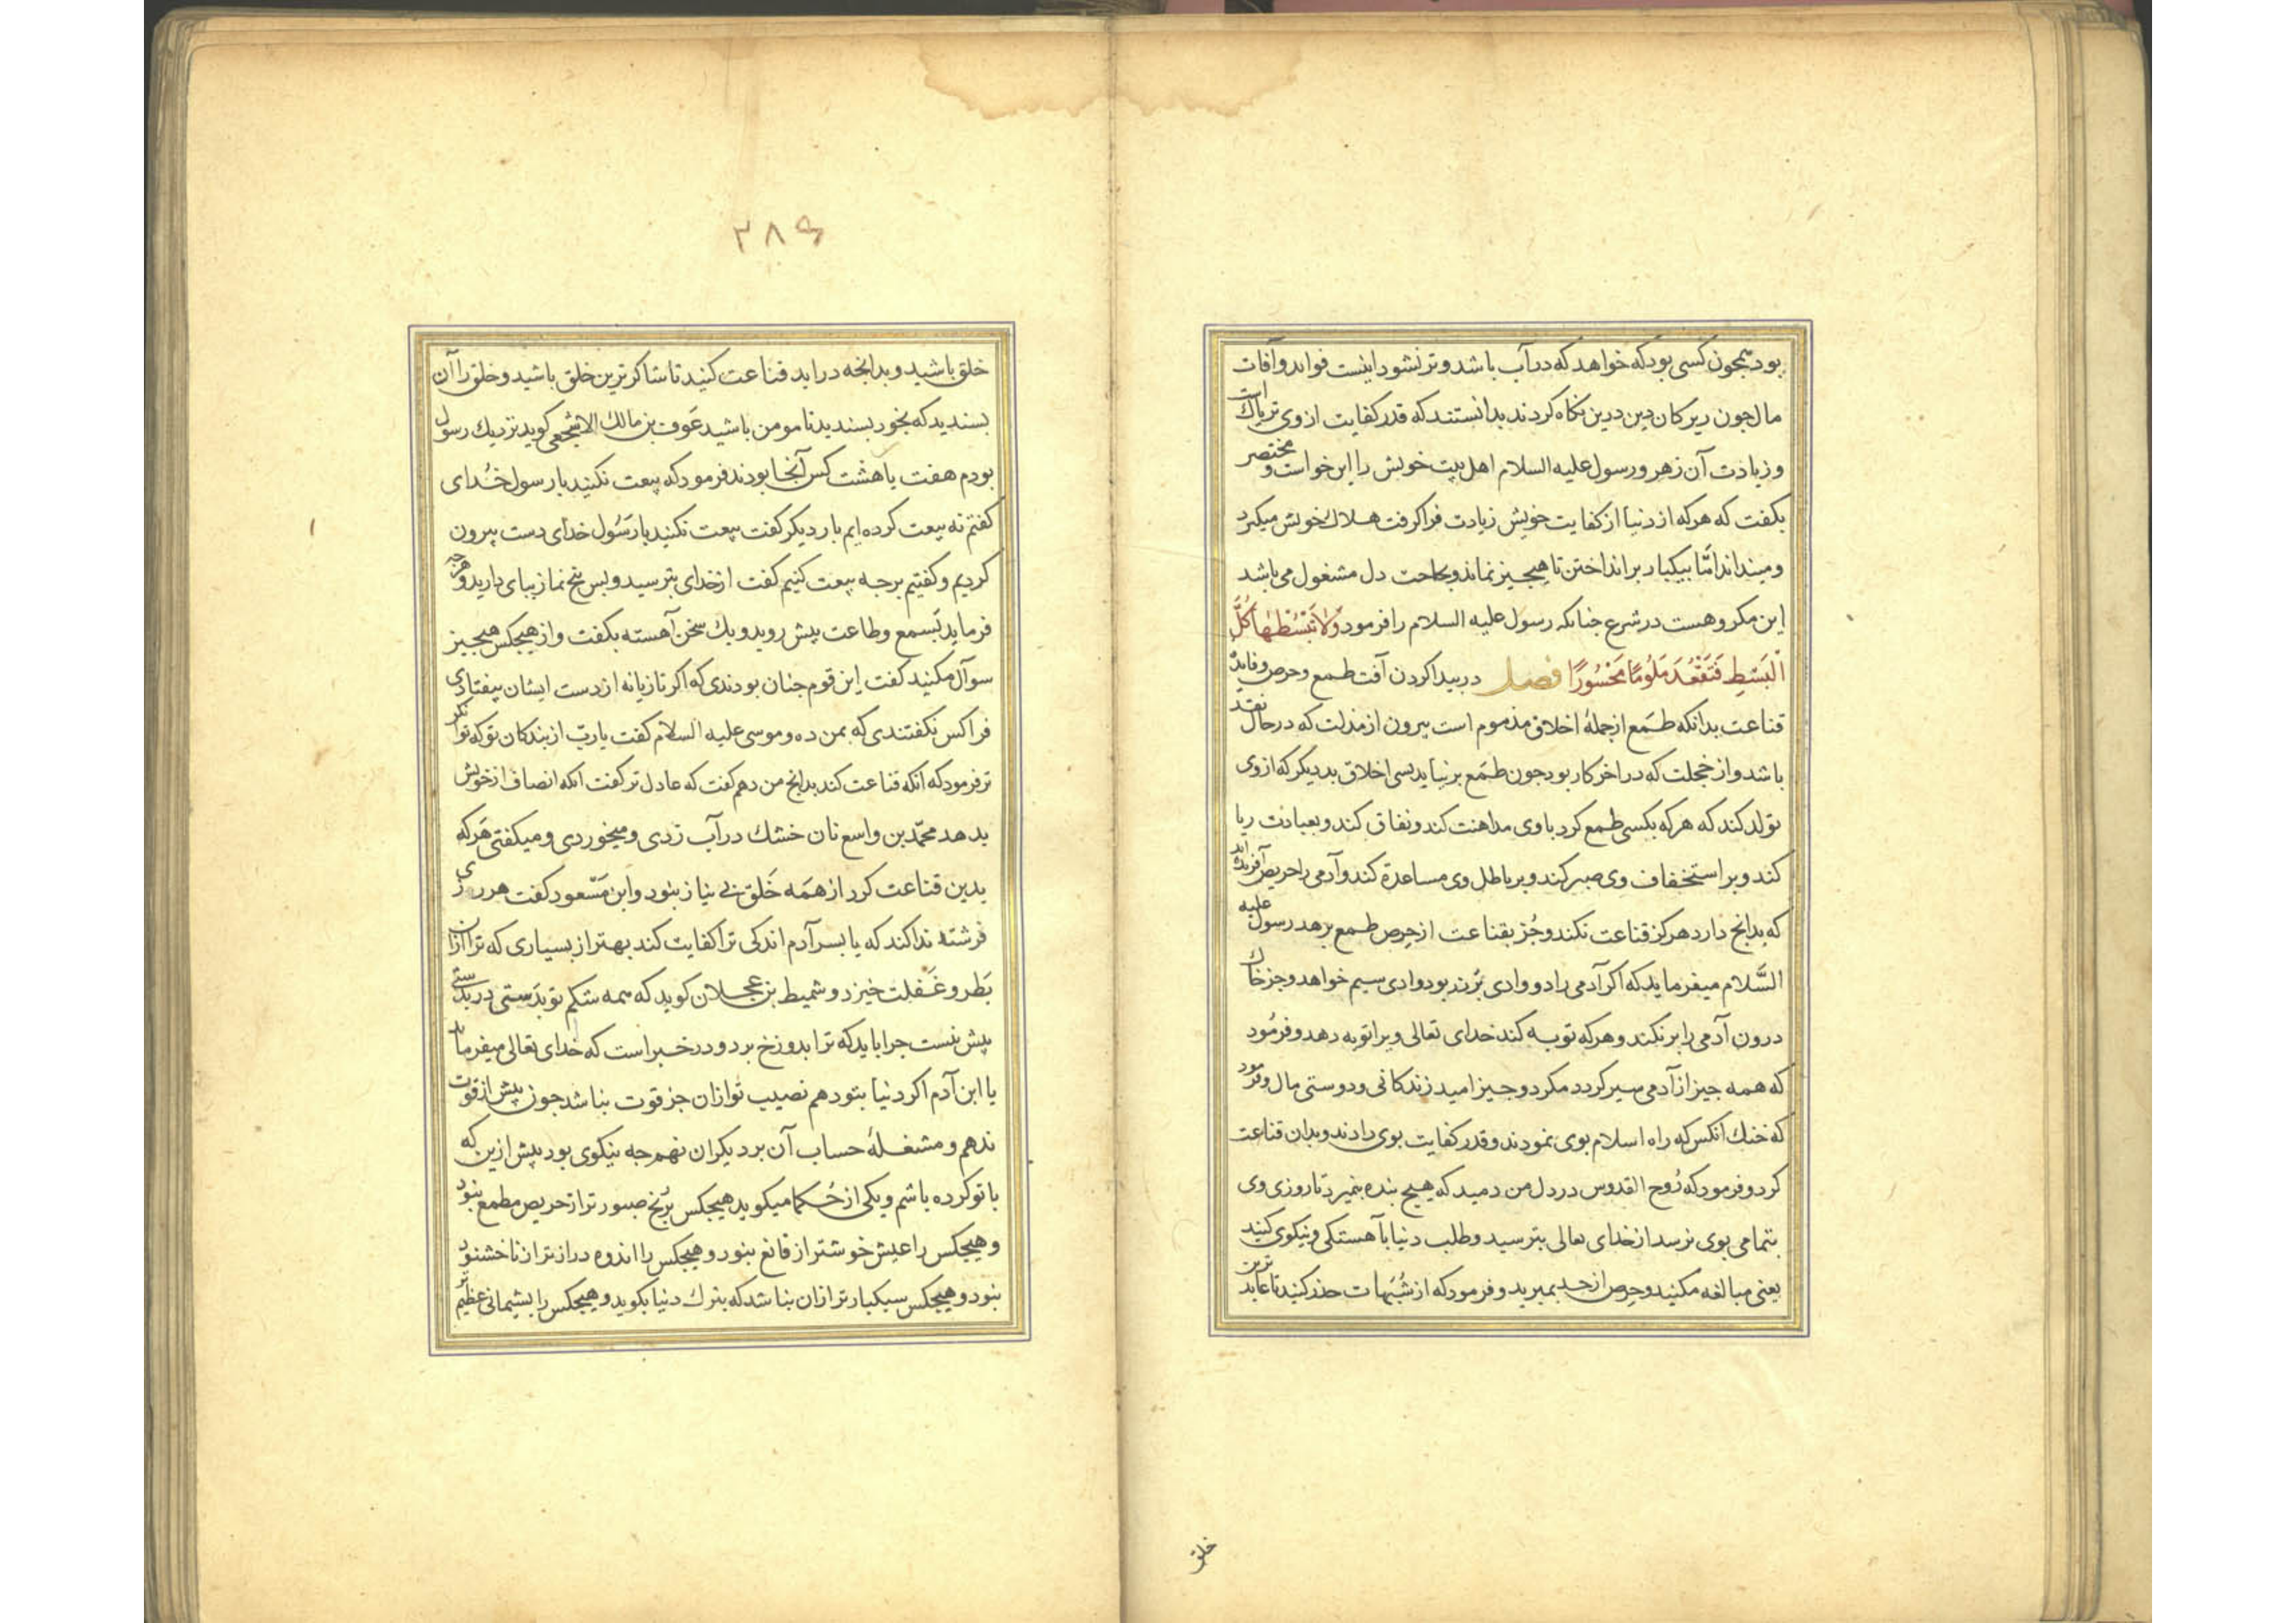 بود همجون کسی بود که خواهد که در آب باشد و تر نشود اینست فواید و آفات
مال جون زیرکان دین درین نکاه کردند بدانستند که قدر کفایت از وی تریاک است
و زیادت آن زهر و رسول علیه السلام اهل بیت خویش را این خواست و مختصر
بکفت که هرکه از دنیا از کفایت خویش زیادت فرا کرفت هلاک خویش میکیرد
و مینداند امّا بیکبار بر انداختن تا هیجیز نماند و بحاجت دل مشغول می باشد
این مکروهست در شرع جنانکه رسول علیه السلام را فرمود وَلاٰ تَبْسُطْهٰا کُلَّ
الْبَسْطِ فَتَقْعُدَ مَلُومًا مَحْسُورًا فصل در بیدا کردن آفت طمع و حرص و فایدهٔ
قناعت بدانکه طمَع از جملهٔ اخلاق مذموم است بیرون از مذلت که در حال نقد
باشد و از خجلت که در اخر کار بود جون طمَع بر نیاید بسی اخلاق بد دیکر که از وی
تولد کند که هرکه بکسی طمع کرد با وی مداهنت کند و نفاق کند و بعبادت ریا
کند و بر استخفاف وی صبر کند و بر باطل وی مساعدة کند و آدمی را حریص آفریده اند
که بدانج دارد هرکز قناعت نکند و جُز بقناعت از حرص و طمع نرهد رسول علیه
السَّلام میفرماید که اکر آدمی را دو وادی بُر زر بود وادی سیم خواهد و جز خاک
درون آدمی را بر نکند و هرکه توبه کند خدای تعالی ویرا توبه دهد و فرمُود
که همه جیز از آدمی سیر کردد مکر دو جیز امید زندکانی و دوستی مال و فرمود
که خنک انکس که راه اسلام بوی نمودند و قدر کفایت بوی دادند و بدان قناعت
کرد و فرمود که رُوح القدوس در دل من دمید که هیج بنده نمیرد تا روزی وی
بتمامی بوی نرسد از خدای تعالی بترسید و طلب دنیا بآهستکی و نیکوی کنید
یعنی مبالغه مکنید و حرص از حد مبرید و فرمود که از شُبَهات حذر کنید تا عابدترین
خلق
۳۸۶
خلق باشید و بدانجه دراید قناعت کنید تا شاکر ترین خلق باشید و خلق را آن
بسندید که بخود بسندید تا مومن باشید عَوف بن مالک الاشجعی کوید نزدیک رسول
بودم هفت یا هشت کس آنجا بودند فرمود که بیعت نکنید با رسول خُدای
کفتم نه بیعت کرده ایم بار دیکر کفت بیعت نکنید با رَسُول خدای دست بیرون
کردیم و کفتیم بر جه بیعت کنیم کفت از خدای بترسید و بس بنج نماز ببای دارید و هرجه
فرماید بَسمع و طاعت بیش روید و یک سخن آهسته بکفت و از هیجکس هیجیز
سوآل مکنید کفت این قوم جنان بودندی که اکر تازیانه از دست ایشان بیفتادی
فرا کس نکفتندی که بمن ده و موسی علیه السلام کفت یاربّ از بندکان تو که توانکر
تر فرمود که انکه قناعت کند بدانج من دهم کفت که عادل تر کفت انکه انصاف از خویش
بدهد محمّد بن واسع نان خشک در آب زدی و میخوردی و میکفتی هَرکه
بدین قناعت کرد از همَه خَلق بی نیاز بنود و ابن مَسْعود کفت هر روزی
فرشتهٔ ندا کند که یا بسر آدم اندکی ترا کفایت کند بهتر از بسیاری که ترا ازان
بَطر و غَفلت خیزد و شمیط بن عجلان کوید که همه شکم تو بَدستی در بدستی
بیش نیست جرا باید که ترا بدوزخ برد و در خبر است که خدای تعالی میفرماید
یا ابن آدم اکر دنیا بتو دهم نصیب تو ازان جز قوت نباشد جون بیش از قوت
ندهم و مشغلهٔ حساب آن بر دیکران نهم جه نیکوی بود بیش ازین که
با تو کرده باشم و یکی از حُکما میکوید هیجکس برُنج صبور تر از حریص مطمع نبود
و هیجکس را عیش خوشتر از قانع نبود و هیجکس را اندوه دراز تر از ناخشنود
نبود و هیجکس سبکبار تر ازان نباشد که بترک دنیا بکوید و هیجکس را بشیمانی عظیم تر